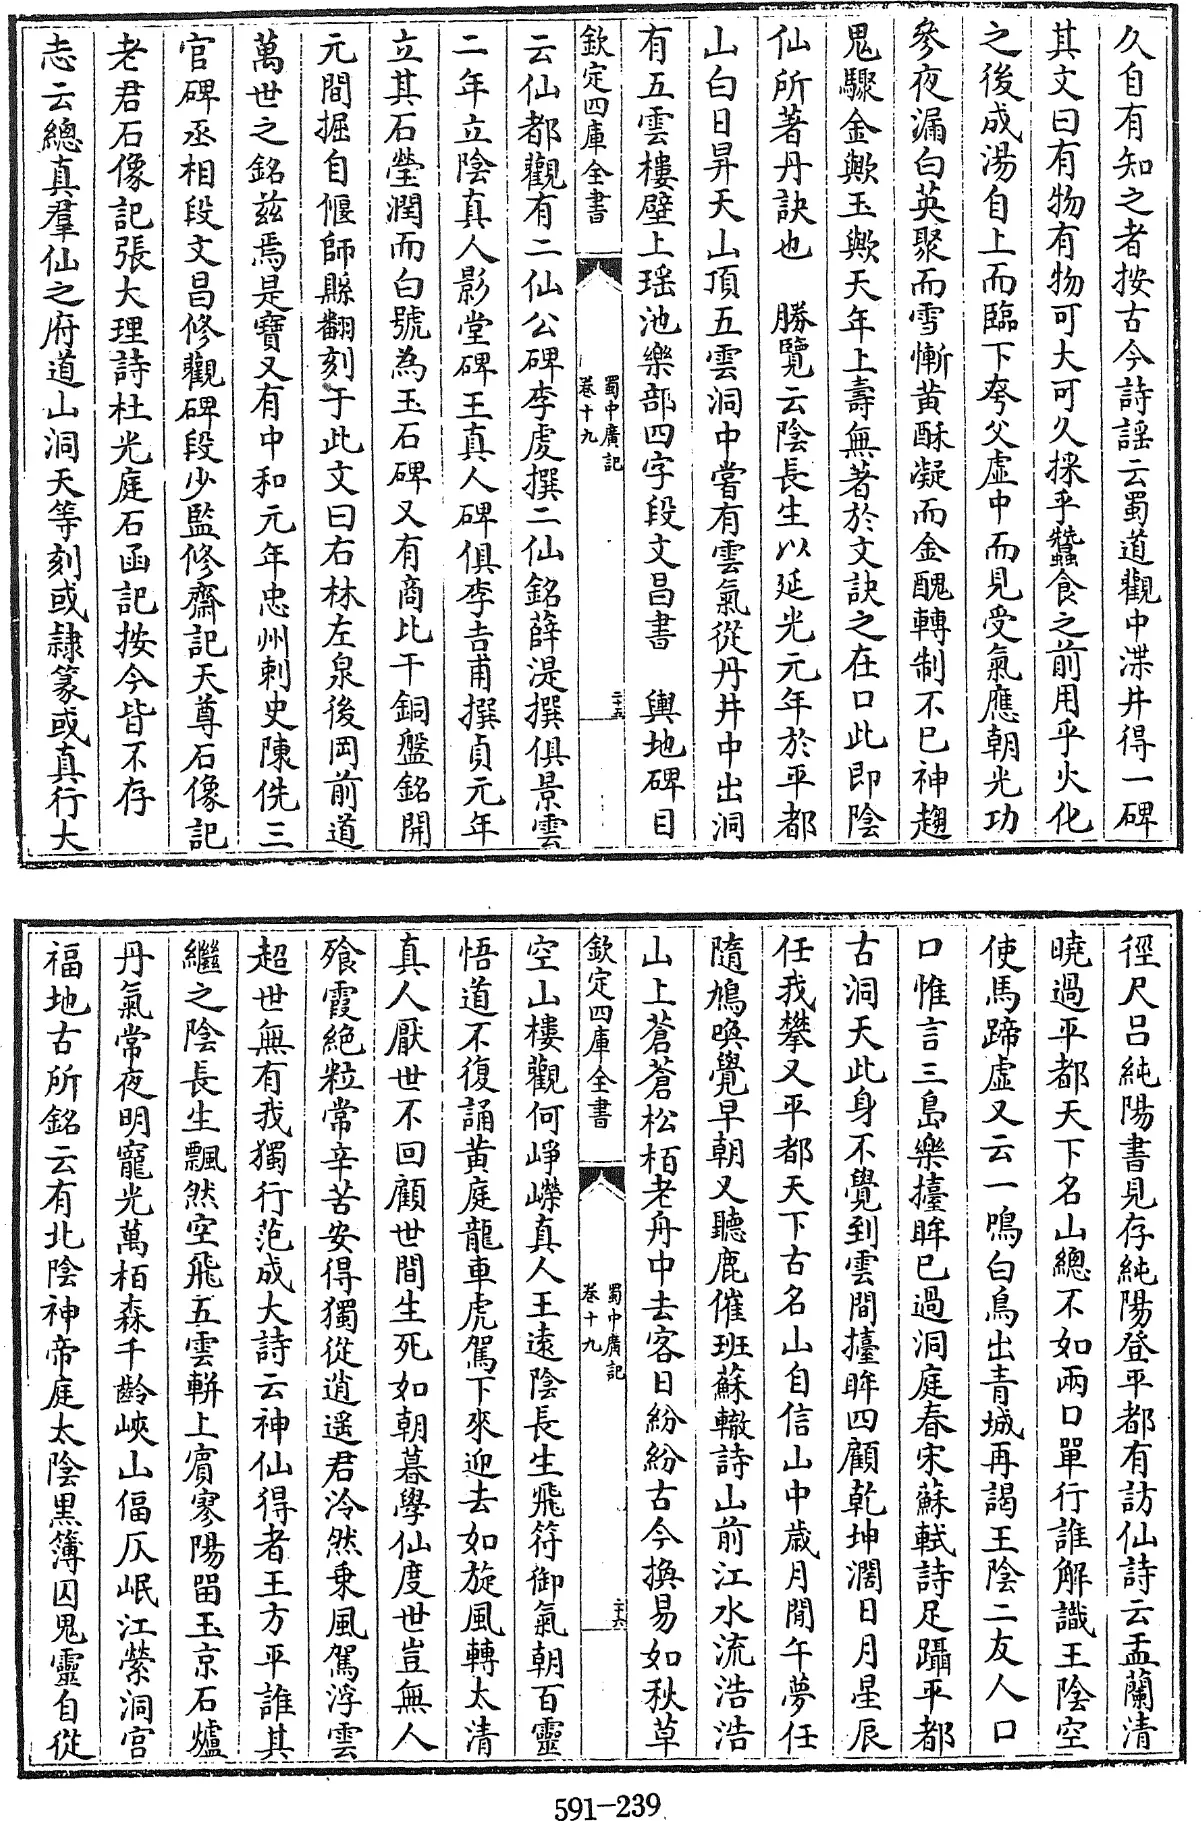 久自有知之者按古今詩謡云蜀道觀中渫井得一碑
其文曰有物有物可大可久採乎蠶食之前用乎火化
之後成湯自上而臨下夸父虛中而見受氣應朝光功
參夜漏白英聚而雪慚黄酥凝而金醜轉制不已神趨
鬼驟金歟玉歟天年上壽無著於文訣之在口此即陰
仙所著丹訣也　勝覽云陰長生以延光元年於平都
山白日昇天山頂五雲洞中嘗有雲氣從丹井中出洞
有五雲樓壁上瑶池樂部四字段文昌書　輿地碑目
欽定四庫全書
蜀中廣記
卷十九
二十五
云仙都觀有二仙公碑李虔撰二仙銘薛湜撰俱景雲
二年立陰真人影堂碑王真人碑俱李吉甫撰貞元年
立其石瑩潤而白號為玉石碑又有商比干銅盤銘開
元間掘自偃師縣翻刻于此文曰右林左泉後岡前道
萬世之銘兹焉是寶又有中和元年忠州刺史陳侁三
官碑丞相段文昌修觀碑段少監修齋記天尊石像記
老君石像記張大理詩杜光庭石函記按今皆不存
志云總真羣仙之府道山洞天等刻或隷篆或真行大
徑尺吕純陽書見存純陽登平都有訪仙詩云盂蘭清
曉過平都天下名山總不如兩口單行誰解識王陰空
使馬蹄虛又云一鳴白鳥出青城再謁王陰二友人口
口惟言三島樂擡眸已過洞庭春宋蘇軾詩足躡平都
古洞天此身不覺到雲間擡眸四顧乾坤濶日月星辰
任我攀又平都天下古名山自信山中歳月閒午夢任
隨鳩喚覺早朝又聽鹿催班蘇轍詩山前江水流浩浩
山上蒼蒼松栢老舟中去客日紛紛古今換易如秋草
欽定四庫全書
蜀中廣記
卷十九
二十六
空山樓觀何崢嶸真人王遠陰長生飛符御氣朝百靈
悟道不復誦黄庭龍車虎駕下來迎去如旋風轉太清
真人厭世不回顧世間生死如朝暮學仙度世豈無人
飱霞絶粒常辛苦安得獨從逍遥君泠然乗風駕浮雲
超世無有我獨行范成大詩云神仙得者王方平誰其
繼之陰長生飄然空飛五雲軿上賓寥陽留玉京石爐
丹氣常夜明寵光萬栢森千齡峽山偪仄岷江縈洞宫
福地古所銘云有北陰神帝庭太陰黒簿囚鬼靈自從
591-239